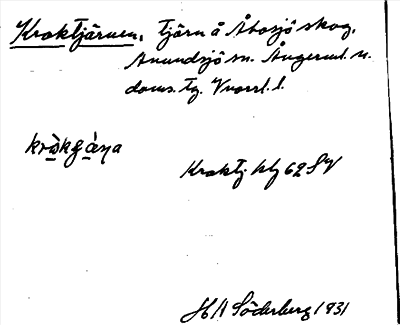 Kroktjärnen, tjärn å Åbosjö skog,
Anundsjö sn. Ångerml. n.
doms. tg. Vnorrl. l.
Kroktj. kbl 62 SV
H A Söderberg 1931